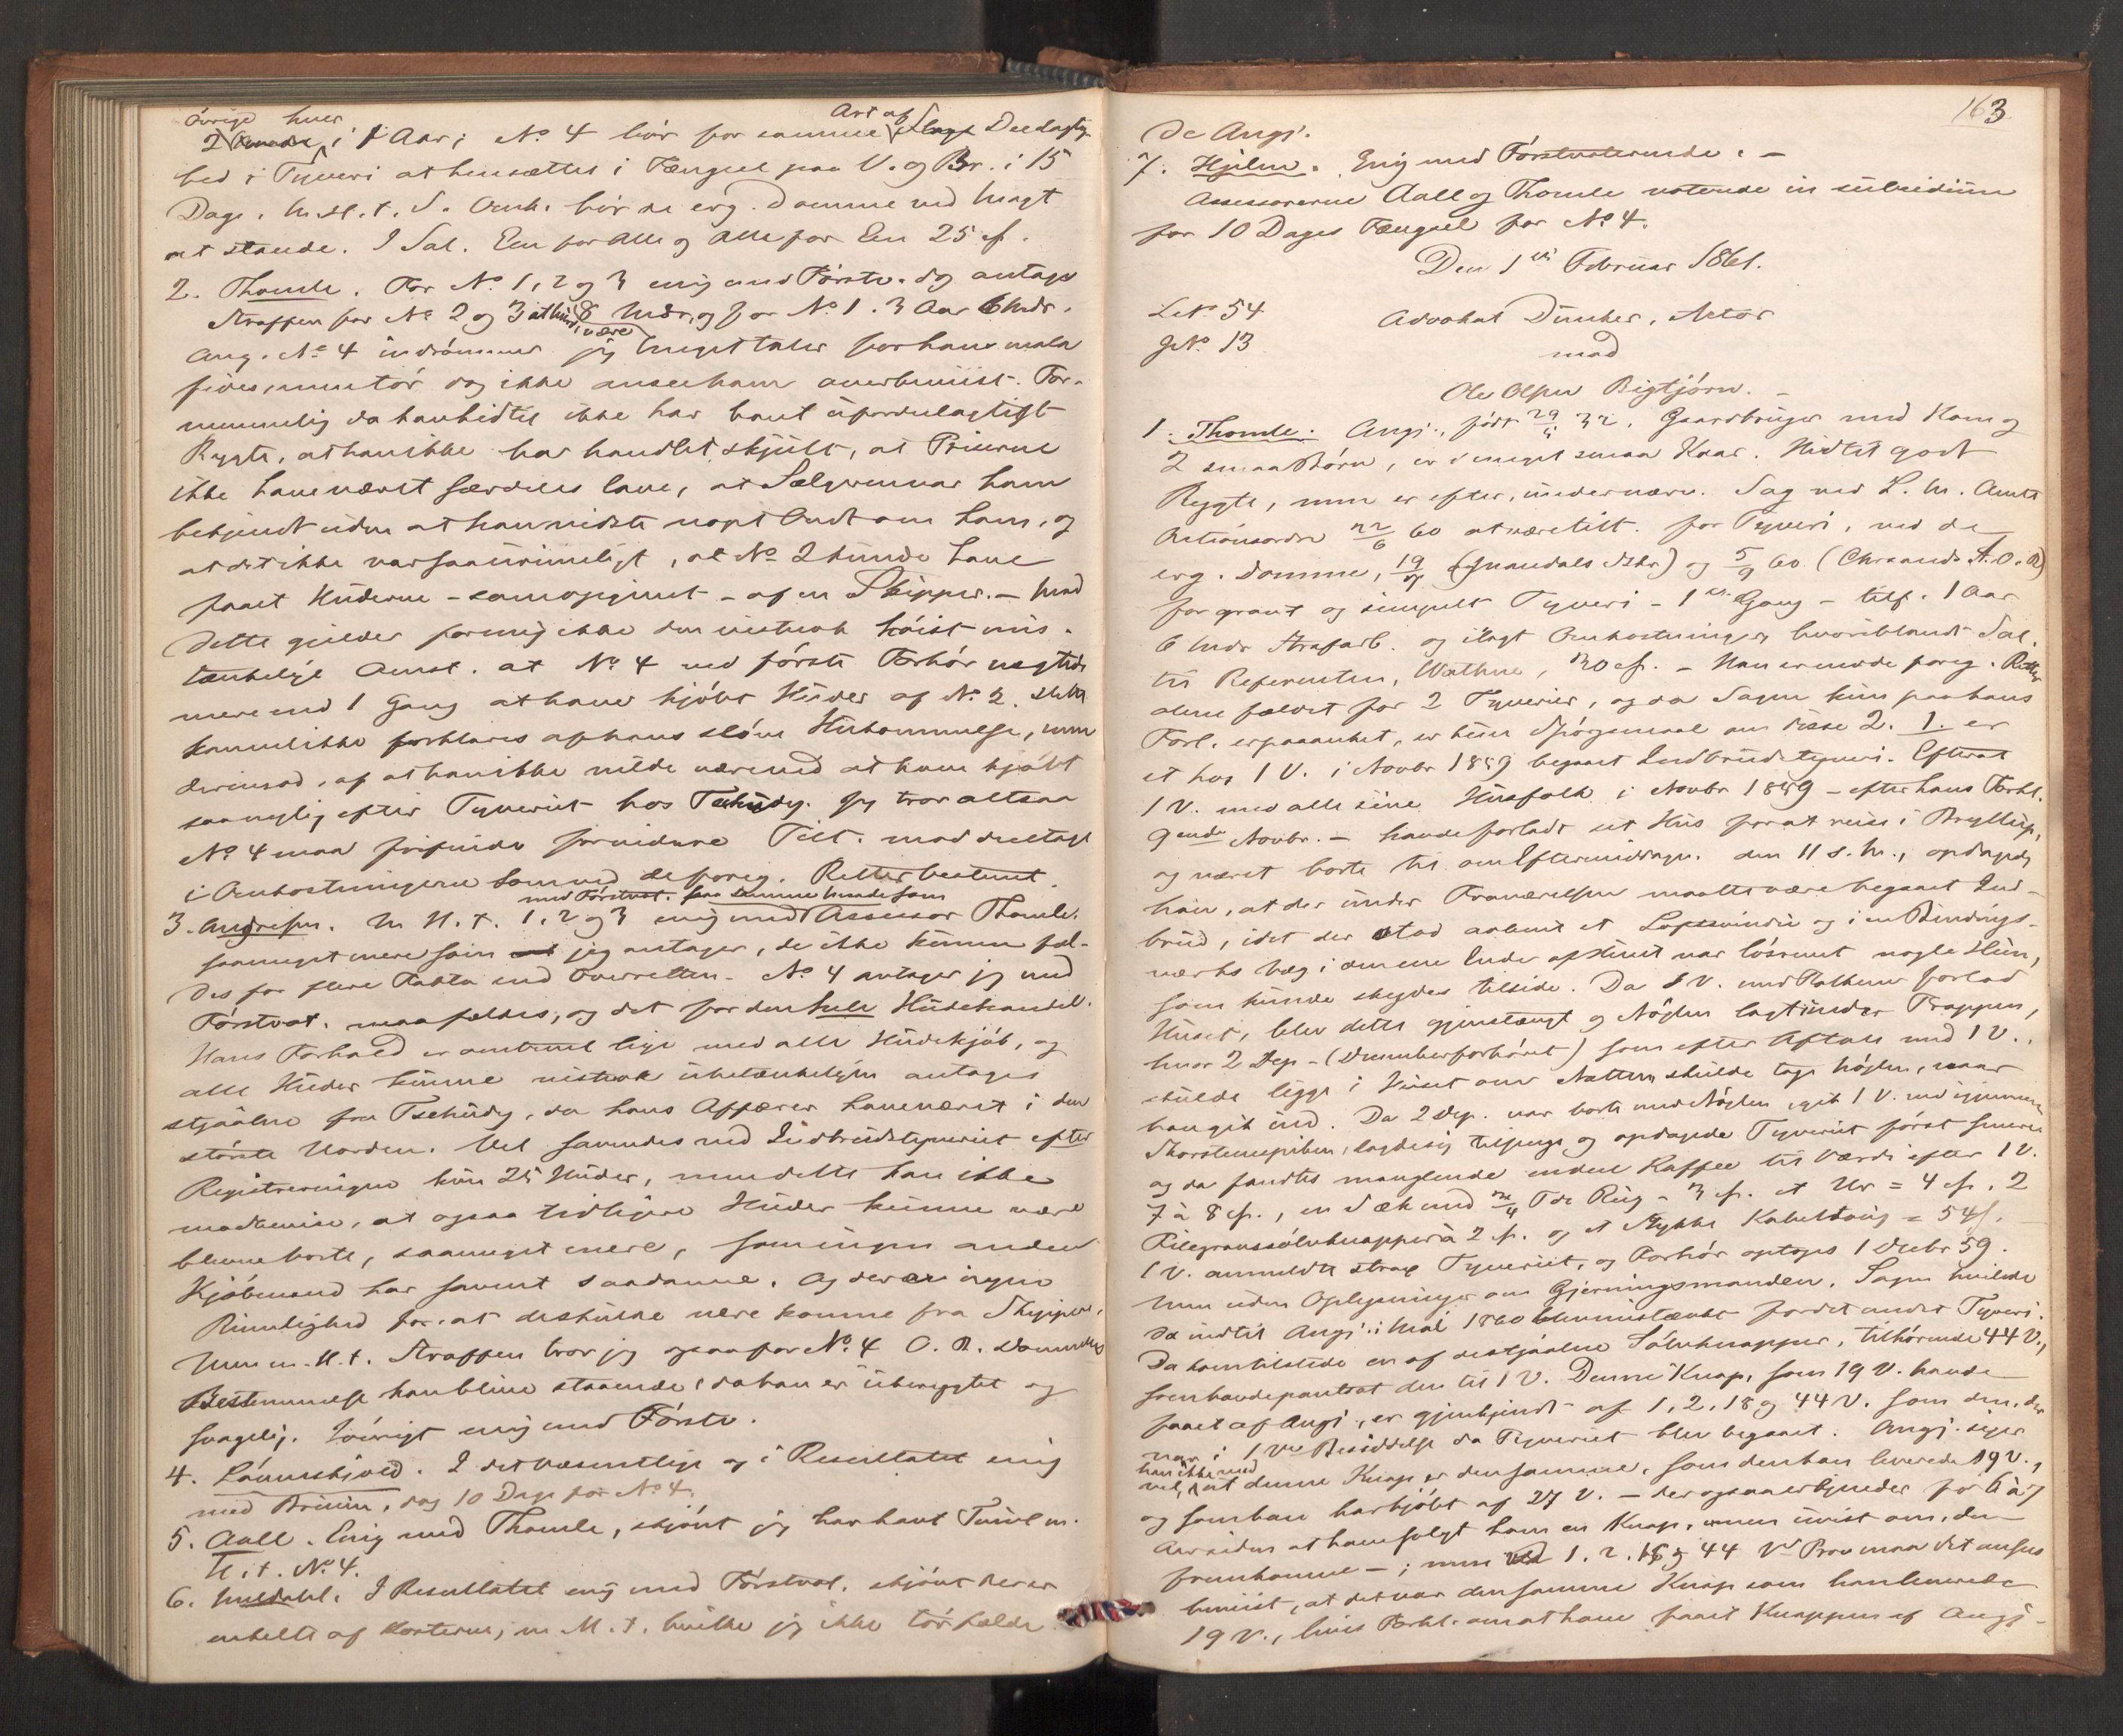 øvrige hver Art af
2 i 1 Aar; No 4 bør for samme Slags Deelagtig-
hed i Tyveri at hensættes i Fængsel paa V. og Br. i 15
Dage. M. H. t. S. Omk. bør de erg. Domme ved Magt
at stande. I Sal. Een for Alle og Alle for Een 25 Sp.
2. Thomle. For No 1, 2 og 3 enig med Førstv. dog antages
Straffen for No 2 og 3 at burde være 8 Mdr. og for No 1. 3 Aar 6 Mdr.
Ang. No 4 indrømmer jeg Meget taler for hans mala
fides, men tør dog ikke ansee ham overbeviist. For-
nemmelig da han hidtil ikke har havt ufordelagtigt
Rygte, at han ikke har handlet skjult, at Priserne
ikke have været særdeles lave, at Sælgeren var ham
bekjendt uden at han vidste noget Ondt om ham, og
at det ikke var saa urimeligt, at No 2 kunde have
faaet Huderne - som opgivet - af en Skipper. - Mod
dette gjælder for mig ikke den vistnok høist mis-
tænkelige Omst. at No 4 ved første Forhør negtede
mere end 1 Gang at have kjøbt Huder af No 2. Dette
kan vel ikke forklares af hans sløve Hukommelse, men
derimod, af at han ikke vilde være ved at have kjøbt
saa nylig efter Tyveriet hos Tschudy. Jeg tror altsaa
No 4 maa frifindes for videre Tilt. mod deeltage
i Omkostningerne som ved de foreg. Retter bestemt.
med Førstvot. paa samme Maade som
3. Andresen. M. H. t. 1, 2 og 3 enig med Assessor Thomle.
saameget mere som jeg antager, de ikke kunne fæl-
des for flere Fakta end Overretten. No 4 antager jeg med
Førstvot. maa fældes, og det for den hele Hudehandel.
Hans Forhold er omtrent lige med alle Hudekjøb, og
alle Huder kunne vistnok ubetænkeligen antages
stjaalne fra Tschudy, da hans Affærer have været i den
største Uorden. Vel savnedes ved Indbrudstyveriet efter
Registreringen kun 25 Huder, men dette kan ikke
modbevise, at ogsaa tidligere Huder kunne være
blevne borte, saameget mere, som ingen anden
Kjøbmand har savnet saadanne. Og der er ingen
Rimelighed for at de skulde være komne fra Skippere.
Men m. H. t. Straffen tror jeg ogsaa for No 4 O. R. Dommens
Bestemmelse kan blive staaende, da han er uberygtet og
svagelig. Iøvrigt enig med Førstv.
4. Løvenskjold. I det væsentlige og i Resultatet enig
med Bruun, dog 10 Dage for No 4.
5. Aall. Enig med Thomle, skjønt jeg har havt Tvivl m.
H. t. No 4.
6. Motzfeldt. I Resultatet enig med Førstvot. skjønt der er
enkelte af Posterne, m. H. t. hvilke jeg ikke tør fælde
163
de Angj.
7. Hjelm. Enig med Førstvoterende. -
Assessorerne Aall og Thomle voterede in subsidium
for 10 Dages Fængsel for No 4.
Den 1ste Februar 1861.
L No 54 Advokat Dunker, Actor
G No. 13 mod
Ole Olsen Bigtjørn. -
1. Thomle. Angj., født 29/5 32. Gaardbruger med Kone og
2 smaa Børn, er i meget smaa Kaar. Hidtil godt
Rygte, men er efter, under nærv. Sag ved L. M. Amts
Actionsordre 22/6 60 at være tilt. for Tyveri, ved de
erg. Domme, 19/7 (Mandals Sskr) og 5/9 60 (Chrsands St. O. R)
for grovt og simpelt Tyveri - 1ste Gang - tilf. 1 Aar
6 Mdr Strafarb. og ilagt Omkostninger, hvoriblandt Sal.
til Referenten, Wathne, 20 Sp. - Han er ved de foreg. Retter
alene fældet for 2 Tyverier, og da Sagen kun paa hans
Forl. er paaanket, er kun Spørgsmaal om disse 2. 1. er
et hos 1 V. i Novbr 1859 begaaet Indbrudstyveri. Efterat
1 V. med alle sine Husfolk i Novbr 1859 - efter hans Forkl.
9ende Novbr. - havde forladt sit Hus for at reise i Bryllup,
og været borte til om Eftermiddagen den 11 s. M., opdagede
han, at der under Fraværelsen maatte være begaaet Ind-
brud, idet der stod aabent et Loftsvindue og i en Bindings-
værks Væg i den ene Ende af Huset var løsrevet nogle Hun,
som kunde skydes tilside. Da 1 V. med Folkene forlod
Huset, blev dette gjenstængt og Nøglen lagt under Trappen,
hvor 2 Dep. (Decemberforhøret) som efter Aftale med 1 V.
skulde ligge i Huset om Natten skulde tage Nøglen, naar
han gik ind. Da 2 Dep. var borte med Nøglen, gik 1 V. ind igjennem
Skorstenspiben, lagde sig tilsengs og opdagede Tyveriet først senere
og da fandtes manglende endeel Kaffee til Værdi efter 1 V.
7 à 8 Sp., en Sæk med 3/4 Tde Rug - 3 Sp. et Ur = 4 Sp. 2
Filegranssølvknapper à 2 Sp. og et Stykke Kabeltoug = 54 s.
1 V. anmeldte strax Tyveriet, og Forhør optoges 1 Decbr 59.
men uden Oplysninger om Gjerningsmanden. Sagen hvilede
da indtil Angj. i Mai 1860 blev mistænkt for det andet Tyveri.
Da kom tilstede en af de stjaalne Sølvknapper, tilhørende 44 V.,
som havde pantsat den til 1 V. Denne Knap, som 19 V. havde
faaet af Angj., er gjenkjendt af 1, 2, 18 og 44 V. som den, der
var i 1 Vs Besiddelse da Tyveriet blev begaaet. Angj. siger
han ikke ved
vel, at denne Knap er den samme, som den han leverede 19 V.,
og som han har kjøbt af 27 V. - der ogsaa erkjender for 6 à 7
Aar siden at have solgt ham en Knap, men uvist om, den
fremkomne -; men ved 1. 2. 18 og 44 Vs Prov maa det ansees
beviist, at det var den samme Knap som han leverede
19 V., hvis Forkl. om at have faaet Knappen af Angj.